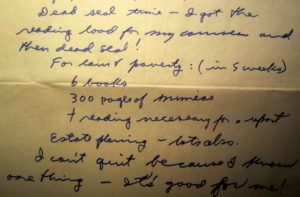 Dead seal time - I got the
reading load for my courses and
then dead seal!
For law & poverty: (in 5 weeks)
6 books
300 pages of mimeos
+ reading necessary for a report
Estate planning - lots also.
I can't quit because I know
one thing - it's good for me!